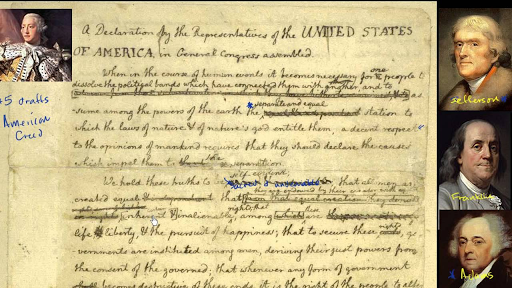 A Declaration by the Representatives of the UNITED STATES
OF AMERICA, in General Congress assembled.
When in the course of human events it becomes necessary for one people to
dissolve the political bands which have connected them with another, and to
assume among the powers of the earth the separate and equal station to
which the laws of nature & of nature's god entitle them, a decent respect
to the opinions of mankind requires that they should declare the causes
which impel them to the separation.
We hold these truths to be self evident; that all men are
created equal
life & liberty, & the pursuit of happiness; that to secure these rights, go
vernments are instituted among men, deriving their just powers from
the consent of the governed; that whenever any form of government
becomes destructive of these ends, it is the right of the people to alter
+5 drafts
American
Creed
Jefferson
Franklin
Adams